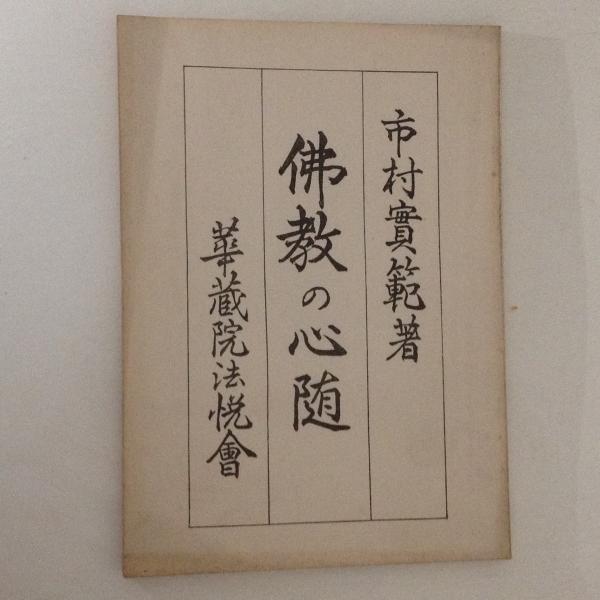 市村實範著
佛教の心随
華蔵院法悦會